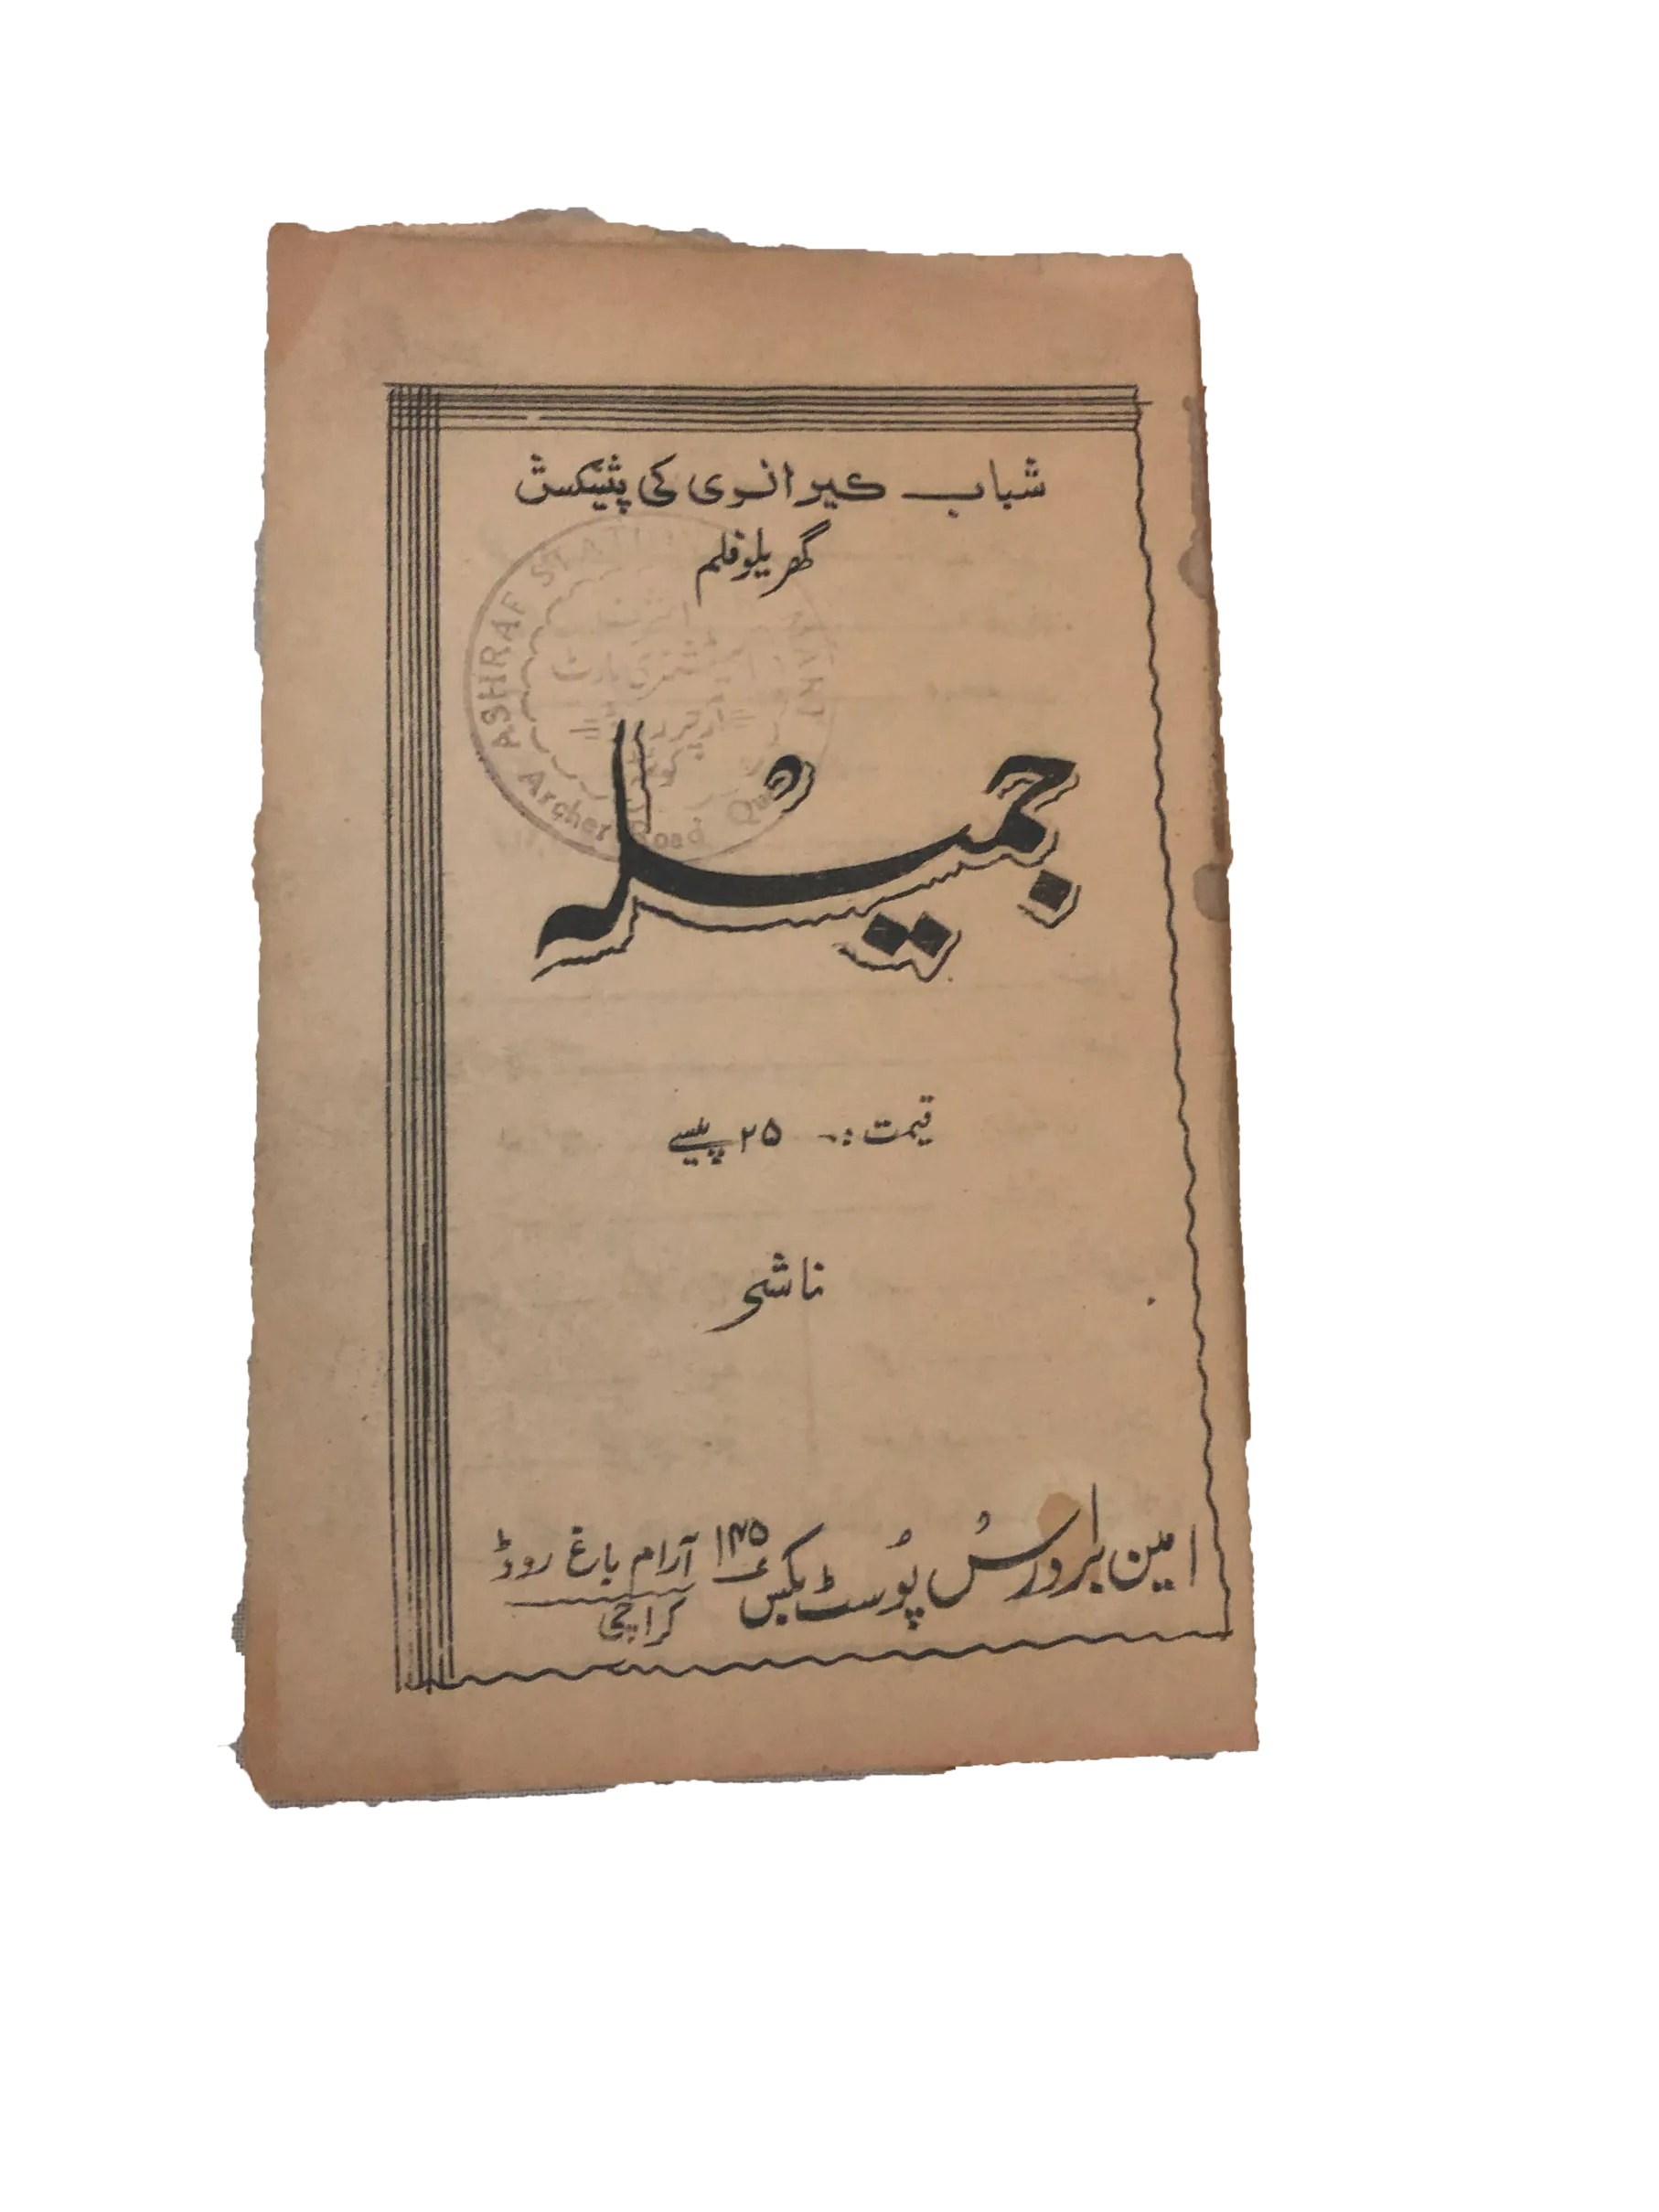 شباب کیرانوی کی پیشکش
گھریلو فلم
ASHRAF STATIONERY MART
اشرف
اسٹیشنری مارٹ
آرچر روڈ
Archer Road
جمیلہ
قیمت :۔ ۲۵ پیسے
ناشر
امین برادرس پوسٹ بکس ۱۴۵ آرام باغ روڈ
کراچی